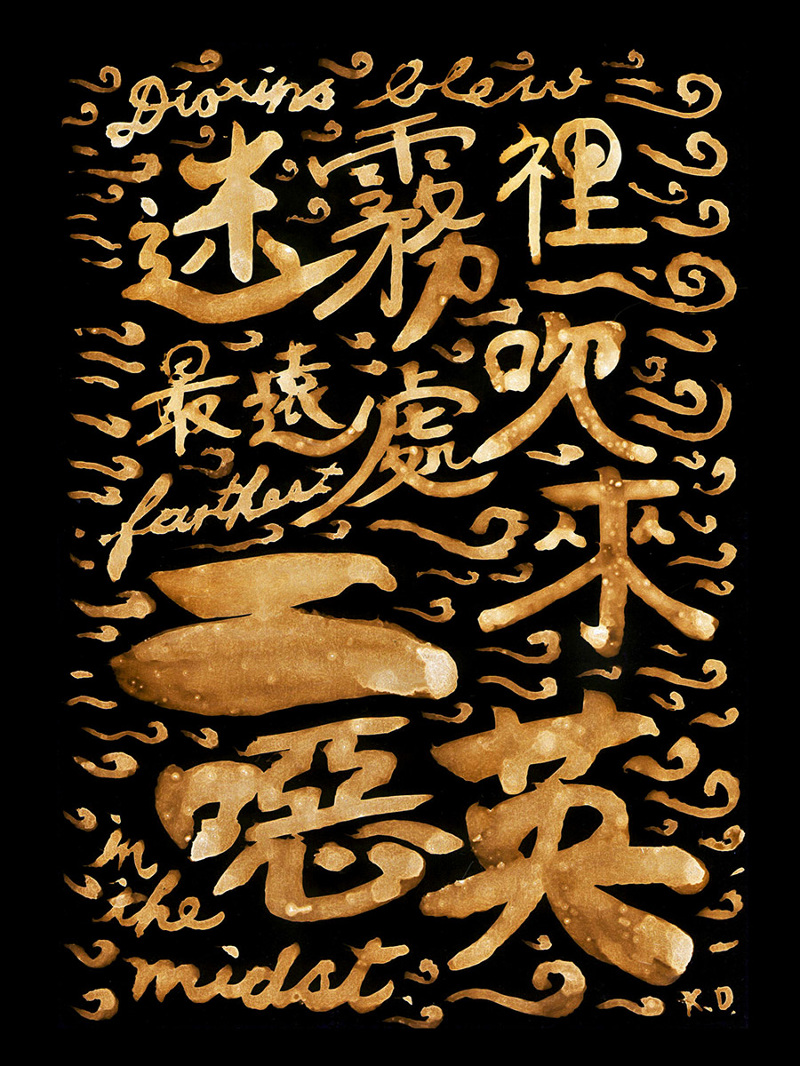 Dioxins blew
迷霧裡
最遠處
吹來
farthest
二
噁英
in
the
midst
K.D.